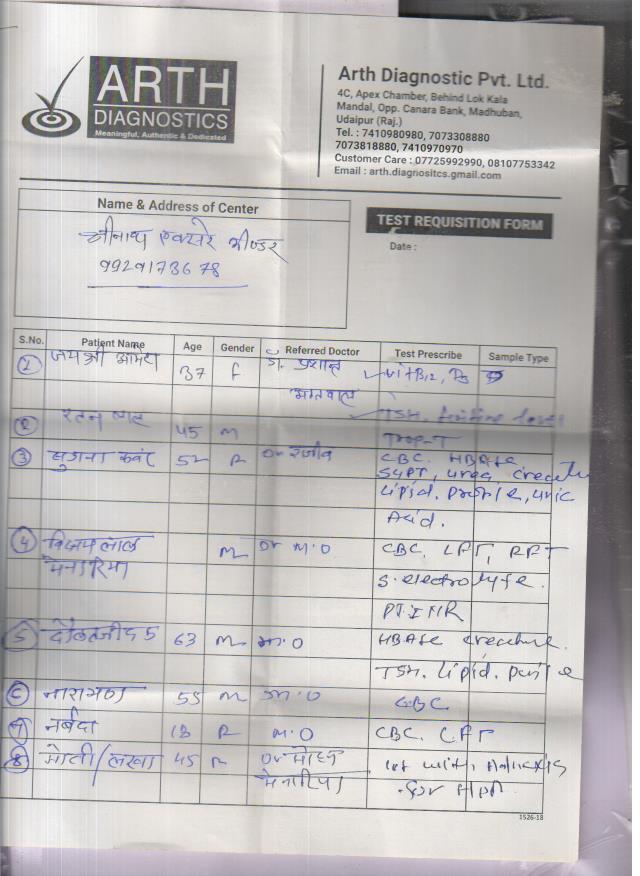 ARTH
DIAGNOSTICS
Meaningful, Authentic & Dedicated
Arth Diagnostic Pvt. Ltd.
4C, Apex Chamber, Behind Lok Kala
Mandal, Opp. Canara Bank, Madhuban,
Udaipur (Raj.)
Tel. : 7410980980, 7073308880
7073818880, 7410970970
Customer Care : 07725992990, 08107753342
Email : arth.diagnositcs.gmail.com
Name & Address of Center
श्रीनाथ एक्सरे भीण्डर
9929173678
TEST REQUISITION FORM
Date :
S.No. Patient Name Age Gender Referred Doctor Test Prescribe Sample Type
1 जयश्री आमेटा 37 F डॉ. प्रशान्त Vit B12, D3
अग्रवाल TSH.
2 रतन लाल 45 M Trop-T
3 कवंर 52 F Dr राजीव CBC. HBA1c
SGPT, urea, creat
Lipid. Profile, uric
Acid.
4 लाल M Dr M.O CBC. LFT, RFT
मेनारिया S. electrolyte.
PT INR
5 63 M M.O HBA1c
TSH. Lipid.
6 नारायण 55 M M.O CBC
7 नर्बदा 13 F M.O CBC. LFT
8 मोती/लखा 45 F Dr मोहन with Adnexis
मेनारिया for HPR
1526-18